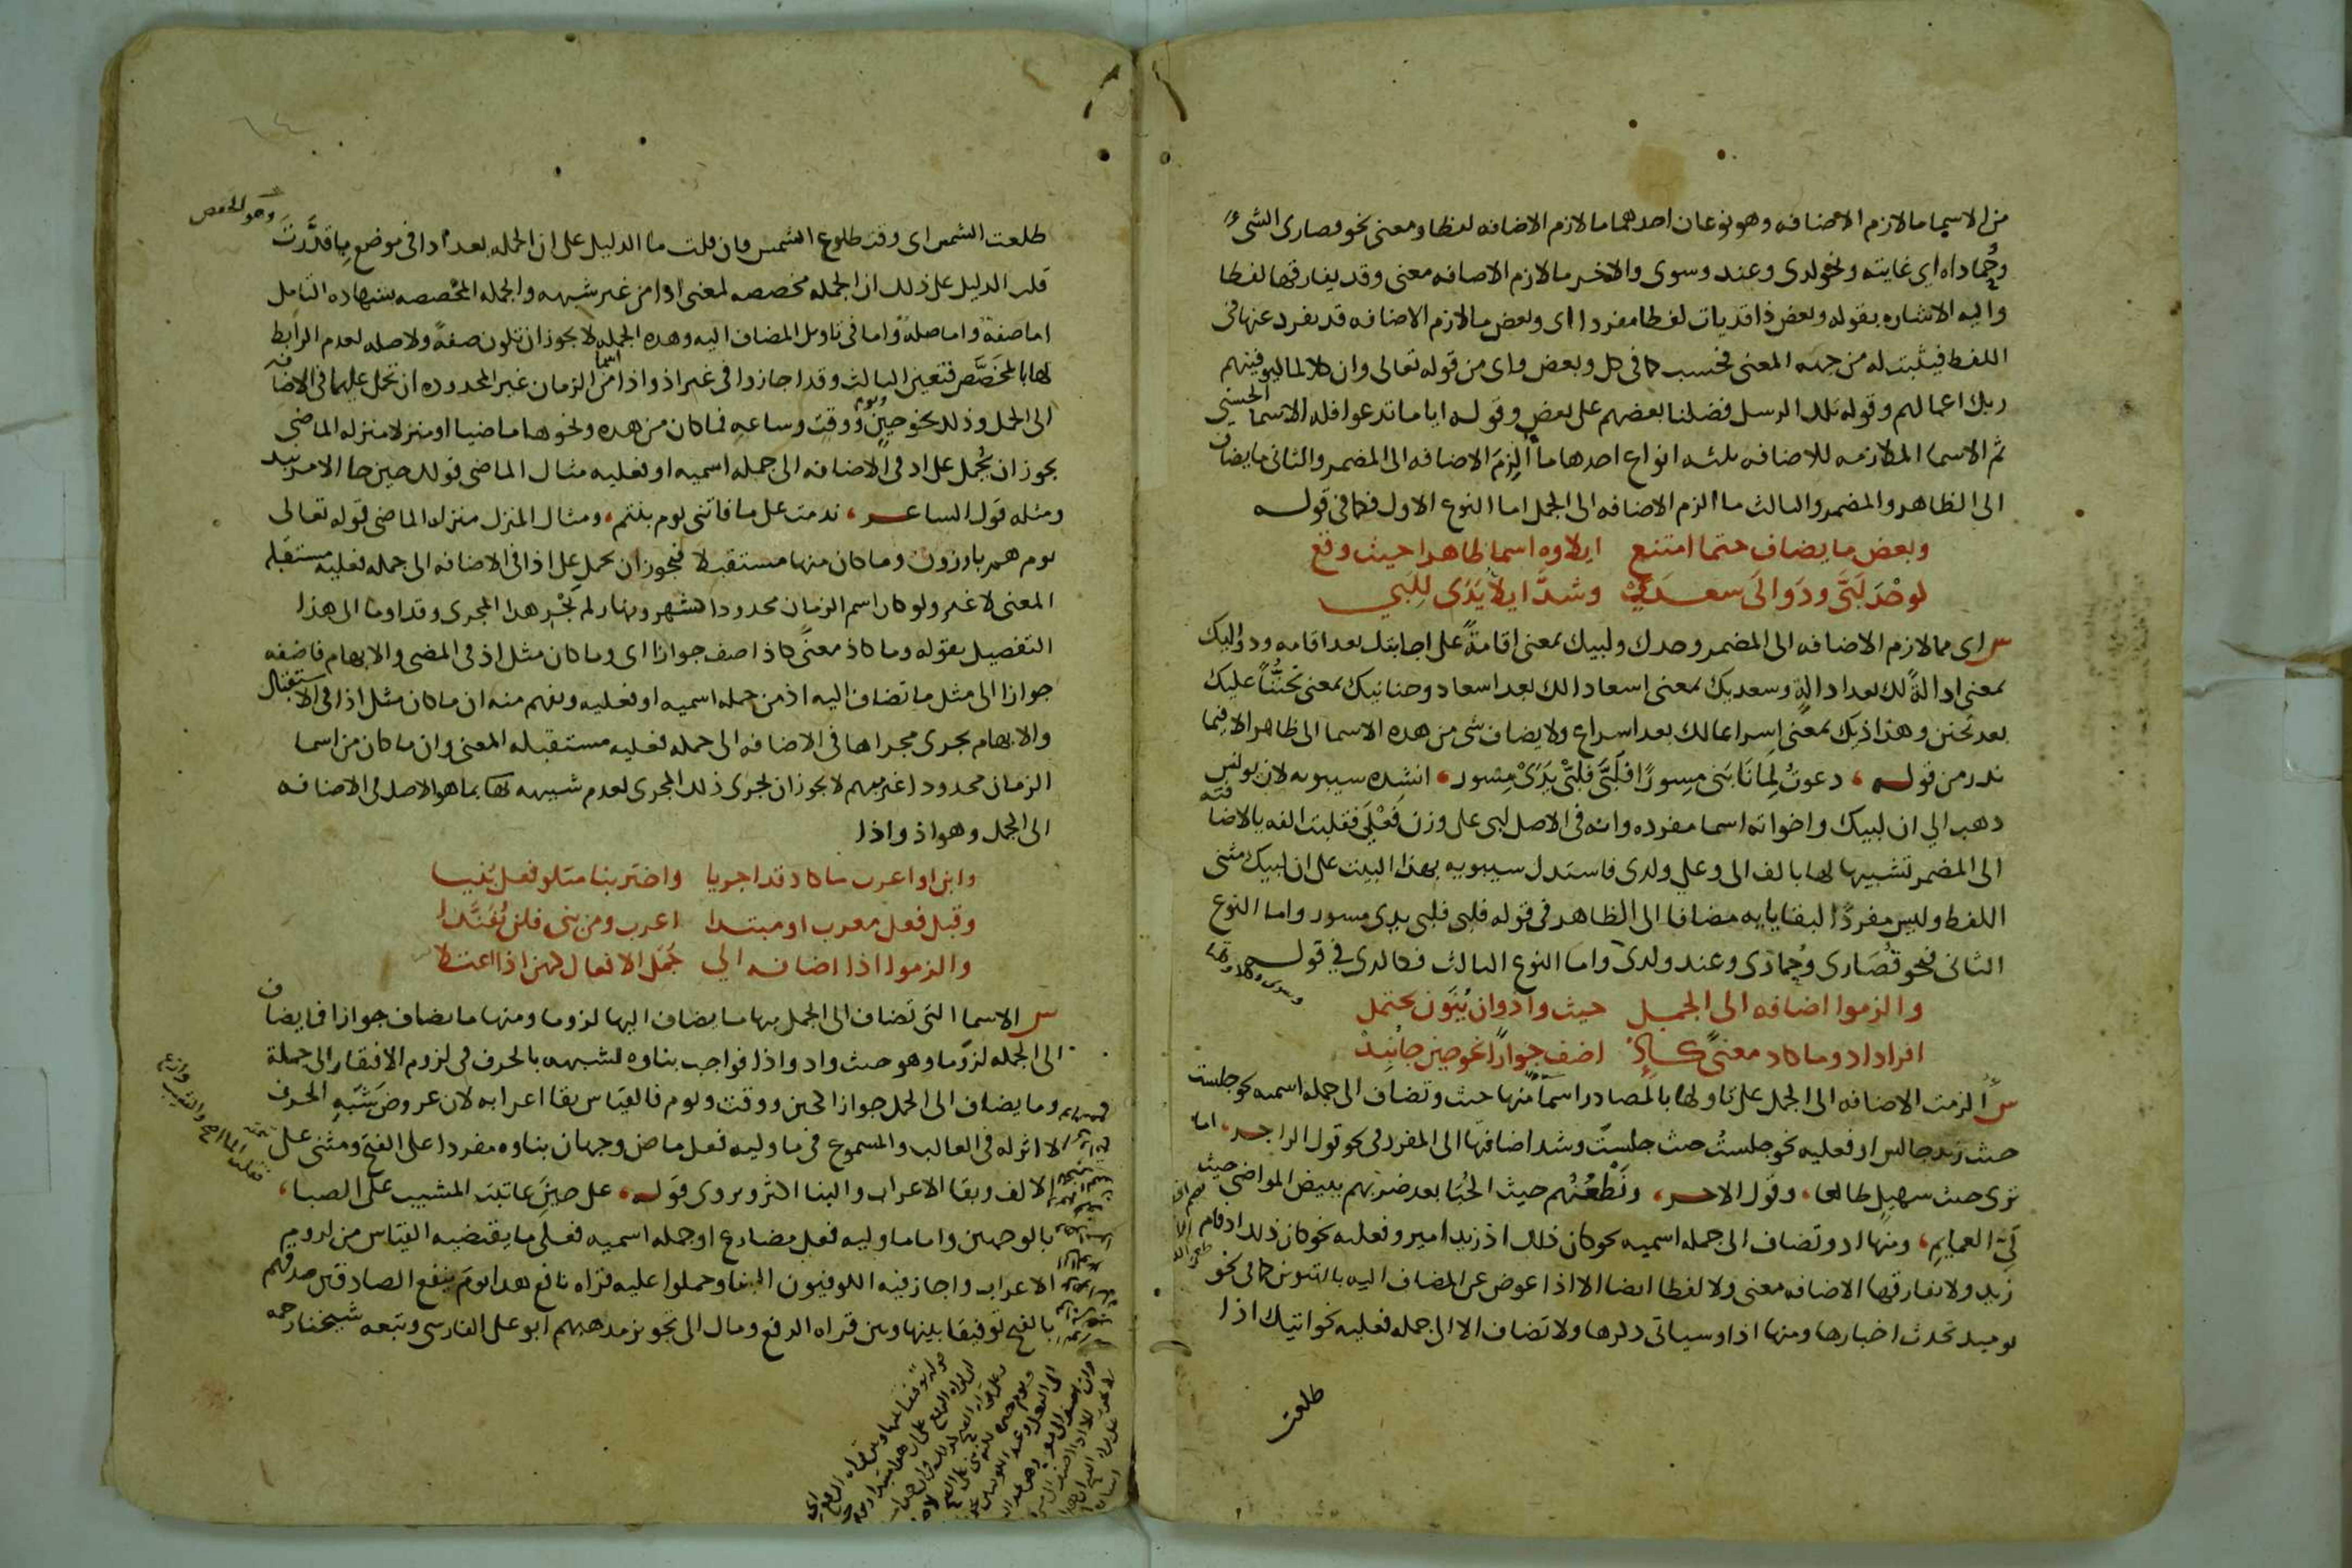 من الاسما ما لازم الاضافه وهو نوعان احدهما ما لازم الاضافه لفظا ومعنى نحو قصارى الشىء
وحُماداه اى غايته ونحو لدى وعند وسوى والاخر ما لازم الاضافه معنى وقد يفارقها لفظا
واليه الاشاره بقوله وبعض ذا قد يات لفظا مفردا اى وبعض ما لازم الاضافه قد يفرد عنها فى
اللفظ فيثبت له من جهه المعنى فحسب كما فى كل وبعض واى من قوله تعالى وان كلا لما ليوفينهم
ربك اعمالهم وقوله تلك الرسل فضلنا بعضهم على بعض وقوله ايا ما تدعوا فله الاسما الحسنى
ثم الاسما الملازمه للاضافه ثلثه انواع احدها ما اُلزِمَ الاضافه الى المضمر والثانى ما يضاف
الى الظاهر والمضمر والثالث ما الزم الاضافه الى الجمل اما النوع الاول فكما فى قوله
وبعض ما يضاف حتما امتنع ايلاوه اسما ظاهرا حيث وقع
لوحْدَ لَبَّى ودَوالَى سعدَىْ وشذَّ ايلا يَدَى لِلَبَّى
س اى مما لازم الاضافه الى المضمر وحدك ولبيك بمعنى اقامةً على اجابتك بعد اقامه ودواليك
بمعنى ادالةً لك بعد ادالةٍ وسعديك بمعنى اسعادا لك بعد اسعاد وحنانيك بمعنى تحنُّناً عليك
بعد تحنن وهذاذيك بمعنى اسراعا لك بعد اسراع ولا يضاف شى من هده الاسما الى ظاهر الا فيما
ندر من قوله، دعوتُ لِما نَابَنى مِسورًا فلَبَّى فلَبَّىْ يَدَىْ مِسْور، انشده سيبويه لان يونس
ذهب الى ان لبيك واخواته اسما مفرده وانه فى الاصل لبى على وزن فَعْلَى فقلبت الفه يا للاضافه
الى المضمر تشبيها لها بالف الى وعلى ولدى فاستدل سيبويه بهذا البيت على ان لبيك مثنى
اللفظ وليس مفردًا لبقا يايه مضافا الى الظاهر فى قوله فلبى فلبى يدى مسور واما النوع
الثانى فنحو قُصَارى وحُمادَى وعند ولدى واما النوع الثالث فكالذى فى قوله
والزموا اضافه الى الجمل حيث واذ وان يُنَوَّن يحتمل
افراد اذ وما كاذ معنىً كاذ اضف جوازًا نحو حين جا نُبِذْ
س اُلزمت الاضافه الى الجمل على تاولها بالمصادر اسماٌ منها حيث وتضاف الى جمله اسميه نحو جلست
حيث زيد جالس او فعليه نحو جلستُ حيث جلستَ وشذ اضافتها الى المفرد فى نحو قول الراجز، اما
ترى حيث سهيلٍ طالعا، وقول الاخر، ونَطْعُنُهم حيث الحُبا بعد ضربهم ببيض المواضى حيث
لَىِّ العمايمِ، ومنها اذ وتضاف الى جمله اسميه نحو كان ذلك اذ زيد امير وفعليه نحو كان ذلك اذ قام
زيد ولا تفارقها الاضافه معنى ولا لفظا ايضا الا اذا عوض عن المضاف اليه بالتنوين كما فى نحو
يوميذ تحدث اخبارها ومنها اذا وسياتى ذكرها ولا تضاف الا الى جمله فعليه نحو اتيتك اذا
طلعت
طلعت الشمس اى وقت طلوع الشمس فان قلت ما الدليل على ان الجمله بعد اذا فى موضع ما قدَّرتَ
قلت الدليل على ذلك ان الجمله مخصصه لمعنى اذا من غير شبهه والجمله المخصصه بشهاده التامل
اما صفة واما صلةٌ واما فى تاويل المضاف اليه وهده الجمله لا يجوز ان تكون صفةً ولا صله لعدم الرابط
لها بالمخَصَّص فتعين الثالث وقد اجازوا فى غير اذ واذا من اسما الزمان غير المحدوده ان تحمل عليهما فى الاضافه
الى الجمل وذلك نحو حينٍ ويوم ووقت وساعهٍ فما كان من هده ونحوها ماضيا او منزلا منزله الماضى
يجوز ان يُحمل على اذ فى الاضافه الى جمله اسميه او فعليه مثال الماضى قولك حين جا الامير نبذ
ومثله قول الشاعر، ندمت على ما فاتنى يوم بنتم، ومثال المنزل منزله الماضى قوله تعالى
يوم هم بارزون وما كان منها مستقبلا فيجوز ان يحمل على اذا فى الاضافه الى جمله فعليه مستقبله
المعنى لا غير ولو كان اسم الزمان محدودا كشهر ونهار لم يَجْرِ هدا المجرى وقد اوما الى هذا
التفصيل بقوله وما كاذ معنًى كاذ اضف جوازا اى وما كان مثل اذ فى المضى والابهام فاضفه
جوازا الى مثل ما تضاف اليه اذ من جمله اسميه او فعليه ويفهم منه ان ما كان مثل اذا فى الاستقبال
والابهام يجرى مجراها فى الاضافه الى جمله فعليه مستقبله المعنى وان ما كان من اسما
الزمان محدودا غير مبهم لا يجوز ان يجرى ذلك المجرى لعدم شبهه بما هو الاصل فى الاضافه
الى الجمل وهو اذ واذا
وابن او اعرب ما كاذ قد اجريا واختر بنا متلو فعل بُنيا
وقبل فعل معرب او مبتدا اعرب ومن بنى فلن يُفَنَّدا
والزموا اذا اضافه الى جُمَل الافعال كهن اذا اعتلا
س الاسما التى تضاف الى الجمل منها ما يضاف اليها لزوما ومنها ما يضاف جوازا فما يضاف
الى الجمله لزوما وهو حيث واذ واذا فواجب بناوه لشبهه بالحرف فى لزوم الافتقار الى جملة
وما يضاف الى الجمل جوازا كحين ووقت ويوم فالقياس بقا اعرابه لان عروض شَبَهِ الحرف
لا اثر له فى الغالب والمسموع فى ما وليه فعل ماض وجهان بناوه مفردا على الفتح ومثنى على
الالف وبقا الاعراب والبنا اكثر ويروى قوله، على حينَ عاتبت المشيب على الصبا،
بالوجهين واما ما وليه فعل مضارع او جمله اسميه فعلى ما يقتضيه القياس من لزوم
الاعراب واجاز فيه الكوفيون البنا وحملوا عليه قراه نافع هدا يومَ ينفع الصادقين صدقهم
بالفتح توفيقا بينها وبين قراه الرفع ومال الى تجويز مذهبهم ابو على الفارسى وتبعه شيخنا رحمه